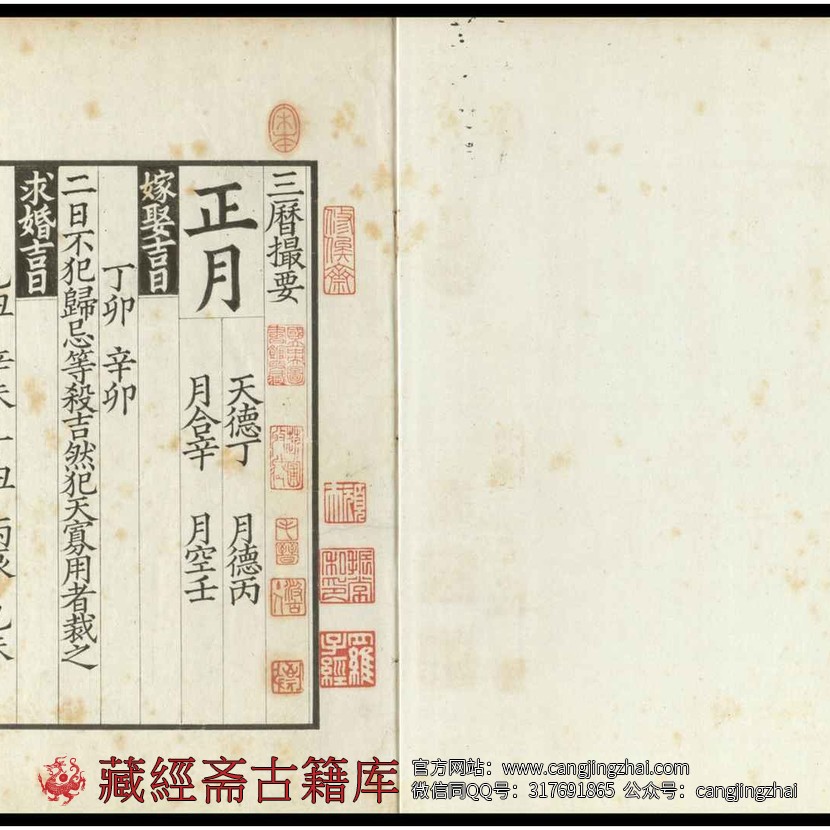 三曆撮要
正月
天德丁 月德丙
月合辛 月空壬
嫁娶吉日
丁卯 辛卯
二日不犯歸忌等殺吉然犯天寡用者裁之
求婚吉日
宋本
毛晉
顧
振常
羅
子經
藏經斋古籍库
官方网站：www.cangjingzhai.com
微信同QQ号：317691865 公众号：cangjingzhai